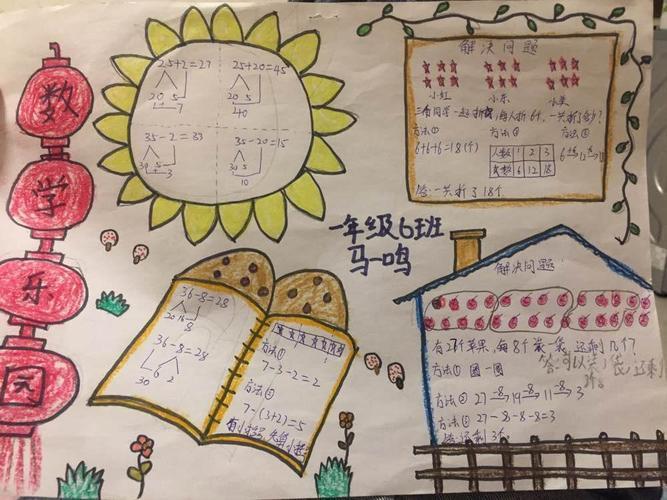 数
学
乐
园
25+2=27
20 5
7
25+20=45
20 5
40
35-2=33
30 5
3
35-20=15
30 5
10
解决问题
小红 小东 小美
方法① 方法② 方法③
6+6+6=18(个)
人数 1 2 3
个数 6 12 18
答:一共折了18个
一年级6班
马一鸣
36-8=28
20 16
8
36-8=28
30 6 2
方法①
7-3-2=2
方法②
7-(3+2)=5
解决问题:
有27个苹果,每8个装一袋,还剩几个?
方法① 圈一圈
方法② 27 -8→ 19 -8→ 11 -8→ 3
方法③ 27-8-8-8=3
答:还剩3个